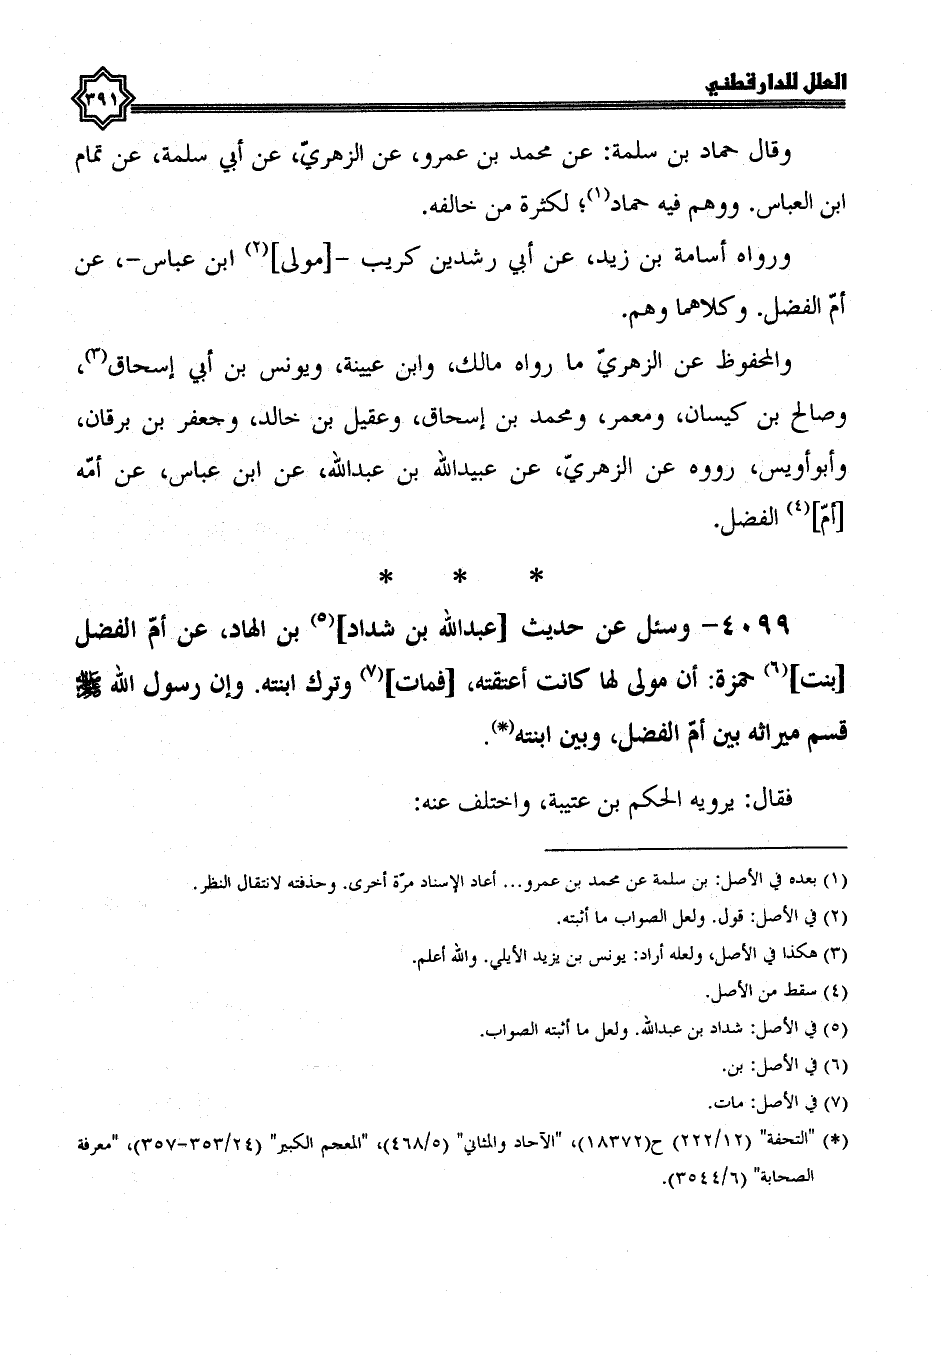 العلل للدارقطني
٣٩١
وقال حماد بن سلمة: عن محمد بن عمرو، عن الزهريّ، عن أبي سلمة، عن تمام
ابن العباس. ووهم فيه حماد(١)؛ لكثرة من خالفه.
ورواه أسامة بن زيد، عن أبي رشدين كريب -[مولى](٢) ابن عباس-، عن
أمّ الفضل. وكلاهما وهم.
والمحفوظ عن الزهريّ ما رواه مالك، وابن عيينة، ويونس بن أبي إسحاق(٣)،
وصالح بن كيسان، ومعمر، ومحمد بن إسحاق، وعقيل بن خالد، وجعفر بن برقان،
وأبوأويس، رووه عن الزهريّ، عن عبيدالله بن عبدالله، عن ابن عباس، عن أمّه
[أمّ](٤) الفضل.
* * *
٤٠٩٩- وسئل عن حديث [عبدالله بن شداد](٥) بن الهاد، عن أمّ الفضل
[بنت](٦) حمزة: أن مولى لها كانت أعتقته، [فمات](٧) وترك ابنته. وإن رسول الله ﷺ
قسم ميراثه بين أمّ الفضل، وبين ابنته(*).
فقال: يرويه الحكم بن عتيبة، واختلف عنه:
(١) بعده في الأصل: بن سلمة عن محمد بن عمرو... أعاد الإسناد مرّة أخرى. وحذفته لانتقال النظر.
(٢) في الأصل: قول. ولعل الصواب ما أثبته.
(٣) هكذا في الأصل، ولعله أراد: يونس بن يزيد الأيلي. والله أعلم.
(٤) سقط من الأصل.
(٥) في الأصل: شداد بن عبدالله. ولعل ما أثبته الصواب.
(٦) في الأصل: بن.
(٧) في الأصل: مات.
(*) "التحفة" (٢٢٢/١٢) ح(١٨٣٧٢)، "الآحاد والمثاني" (٤٦٨/٥)، "المعجم الكبير" (٣٥٣/٢٤-٣٥٧)، "معرفة
الصحابة" (٣٥٤٤/٦).